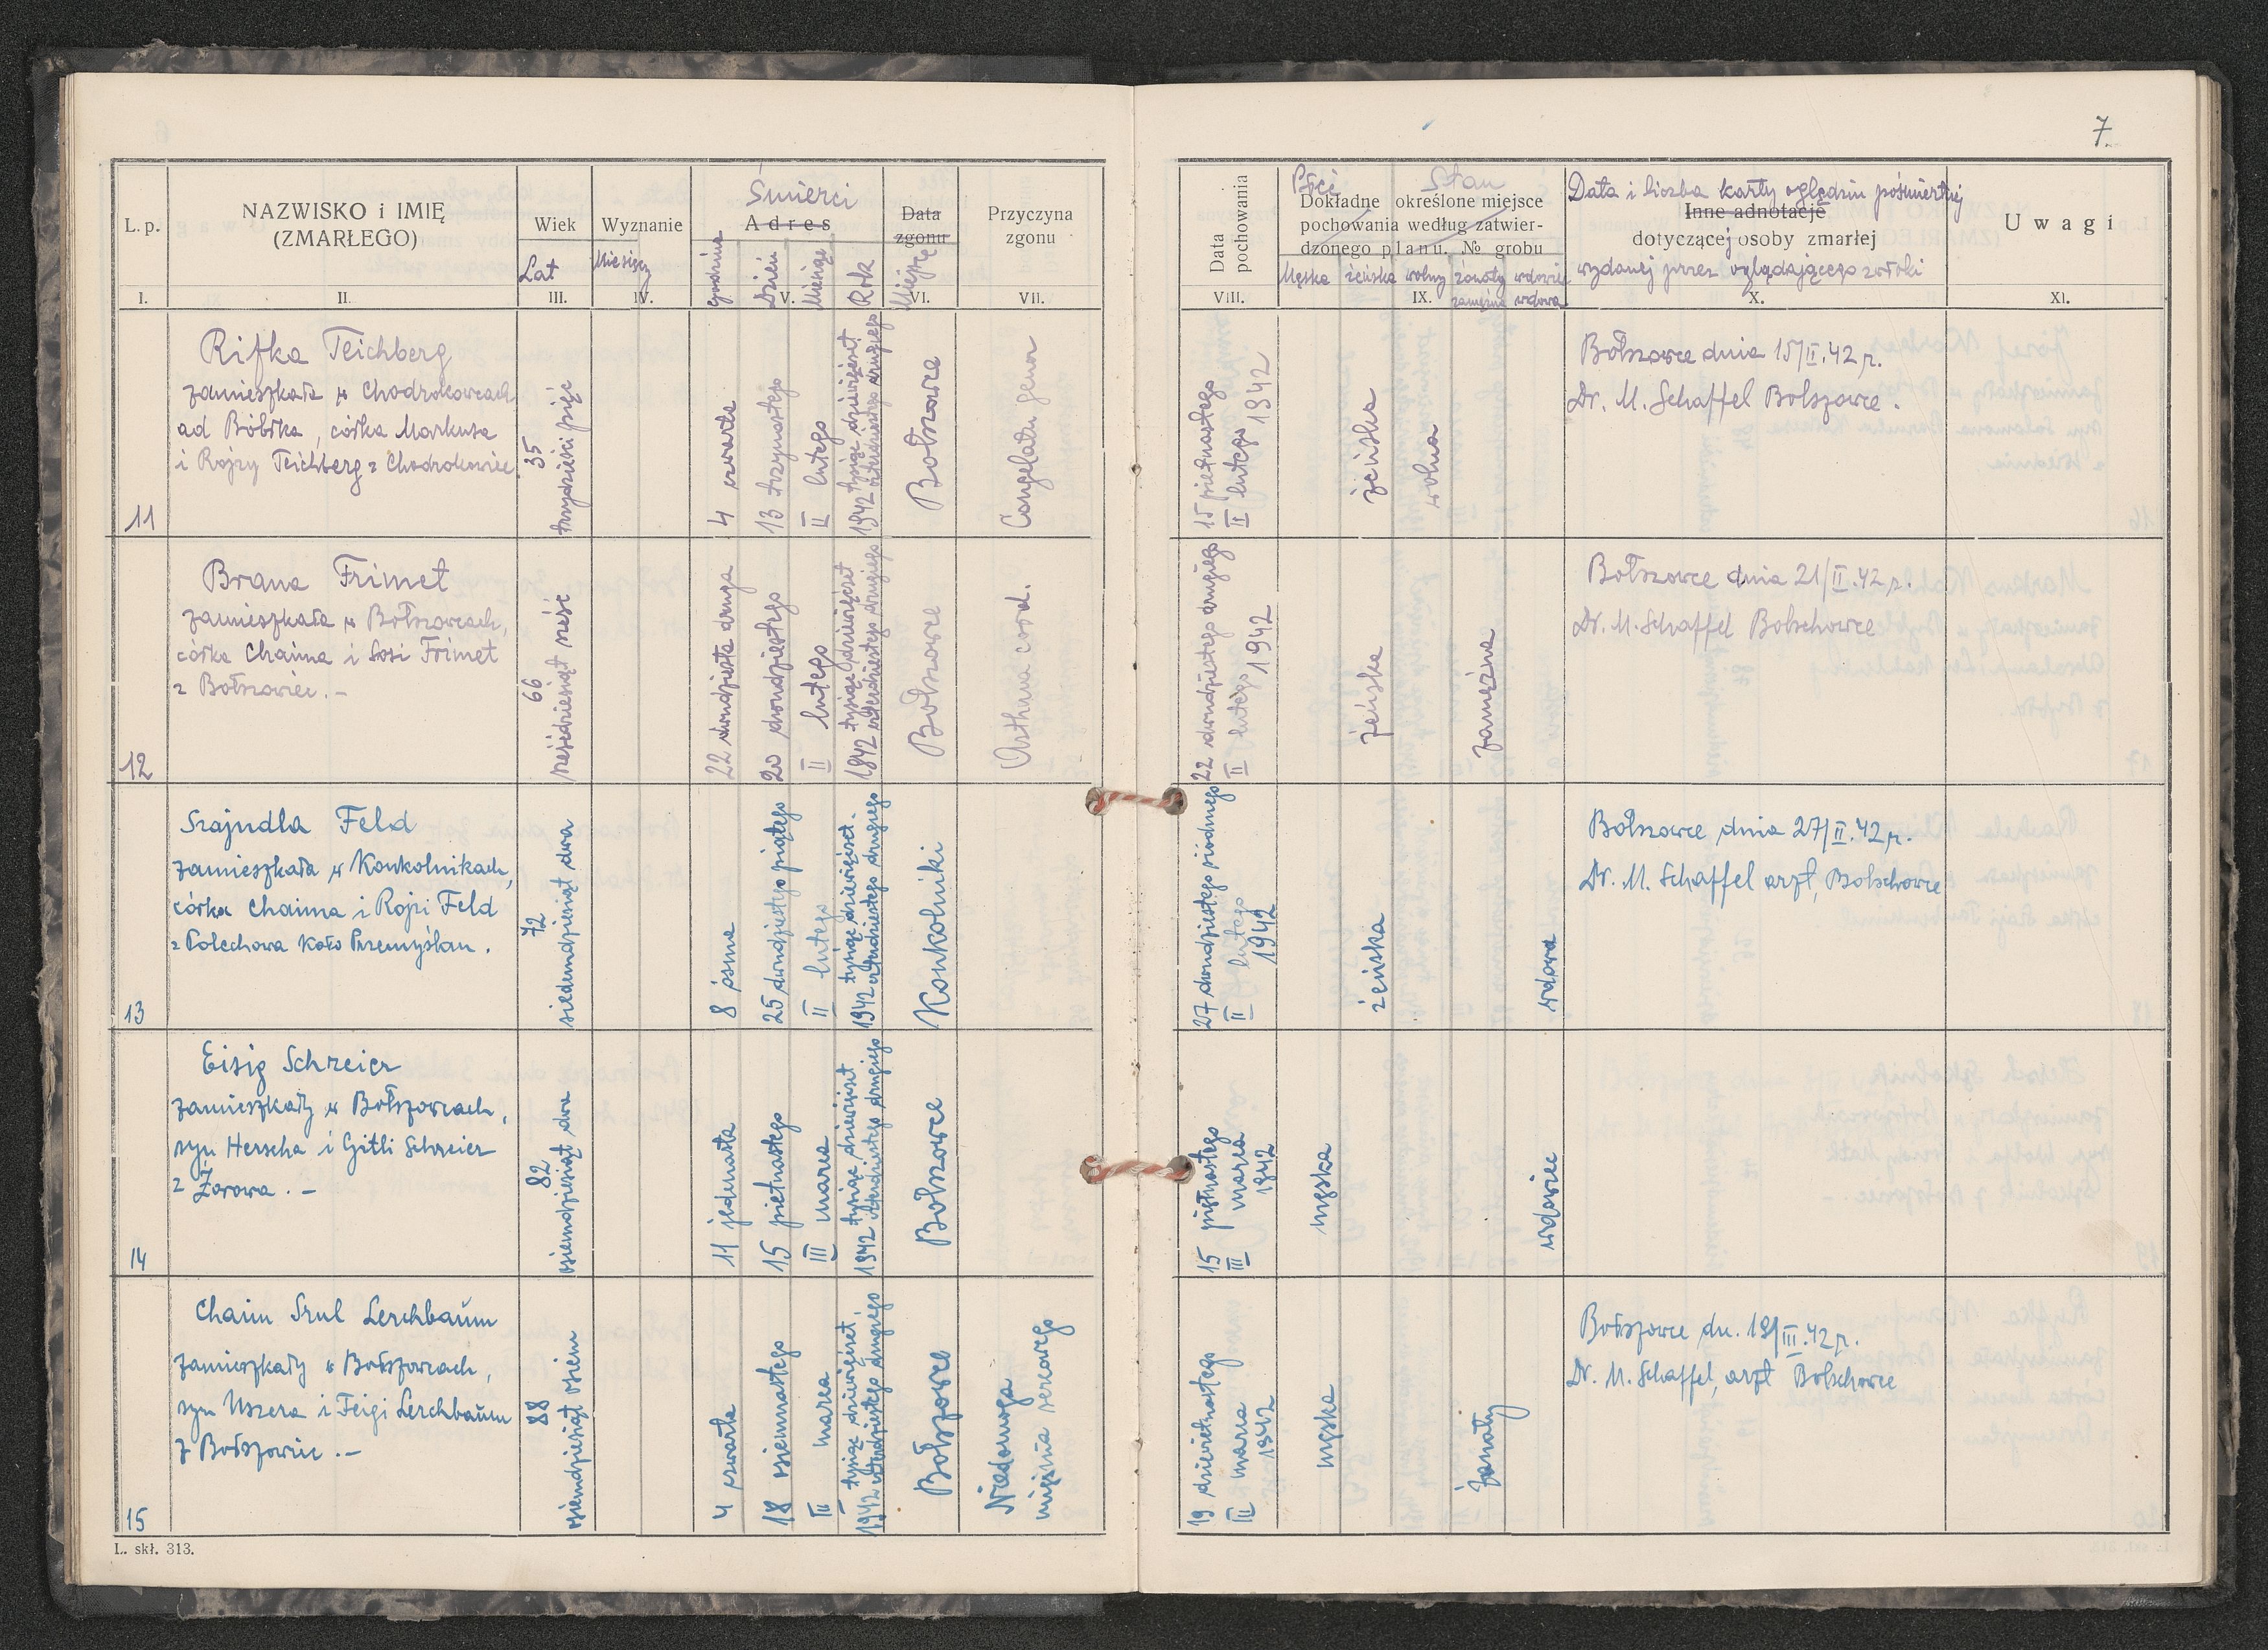 7.
L. p.
NAZWISKO i IMIĘ
(ZMARŁEGO)
Wiek
Lat
Wyznanie
Miesięcy
Śmierci
Adres
godzina
Dzień
Miesiąc
Rok
Data
zgonu
Miejsce
Przyczyna
zgonu
I.
II.
III.
IV.
V.
VI.
VII.
Data
pochowania
Płeć
Stan
Dokładne określone miejsce
pochowania według zatwier-
dzonego planu. № grobu
Męska
żeńska
wolny
żonaty
zamężna
wdowiec
wdowa
Data i liczba karty oględzin pośmiertnej
Inne adnotacje
dotyczącej osoby zmarłej
wydanej przez oglądającego zwłoki
Uwagi
VIII.
IX.
X.
XI.
11
Rifka Teichberg
zamieszkała w Chodrokowcach
ad Bóbrka, córka Markusa
i Rojzy Teichberg z Chodrokowiec
35
trzydzieści pięć
4 czwarta
13 trzynastego
II lutego
1942 tysiąc dziewięćset
czterdziestego drugiego
Bołszowce
Congelatu genu
15 piętnastego
II lutego 1942
żeńska
wolna
Bołszowce dnia 15/II.42 r.
Dr. M. Schaffel Bolszowce.
12
Brana Frimet
zamieszkała w Bołszowcach,
córka Chaima i Sosi Frimet
z Bołszowiec.-
66
sześćdziesiąt sześć
22 dwudziesta druga
20 dwudziestego
II lutego
1942 tysiąc dziewięćset
czterdziestego drugiego
Bołszowce
Asthma cord.
22 dwudziestego drugiego
II lutego 1942
żeńska
zamężna
Bołszowce dnia 21/II.42 r.
Dr. M. Schaffel Bolschowce
13
Szajndla Feld
zamieszkała w Konkolnikach,
córka Chaima i Rojzi Feld
z Polechowa koło Przemyślan.
72
siedemdziesiąt dwa
8 ósma
25 dwudziestego piątego
II lutego
1942 tysiąc dziewięćset.
czterdziestego drugiego
Konkolniki
27 dwudziestego siódmego
II lutego
1942
żeńska
wdowa
Bołszowce dnia 27/II.42 r.
Dr. M. Schaffel arzt, Bolschowce
14
Eisig Schreier
zamieszkały w Bołszowcach,
syn Herscha i Gitli Schreier
z Żórowa. -
82
osiemdziesiąt dwa
11 jedenasta
15 piętnastego
III marca
1942 tysiąc dziewięćset
czterdziestego drugiego
Bołszowce
15 piętnastego
III marca
1942
męska
wdowiec
15
Chaim Srul Lerchbaum
zamieszkały w Bołszowcach,
syn Uszera i Feigi Lerchbaum
z Bołszowiec.-
88
osiemdziesiąt osiem
4 czwarta
18 osiemnastego
III marca
1942 tysiąc dziewięćset
czterdziestego drugiego
Bołszowce
Niedomoga
mięśnia sercowego
19 dziewiętnastego
III marca
1942
męska
żonaty
Bołszowce dn. 19/III.42 r.
Dr. M. Schaffel, arzt Bolschowce
L. skł. 313.